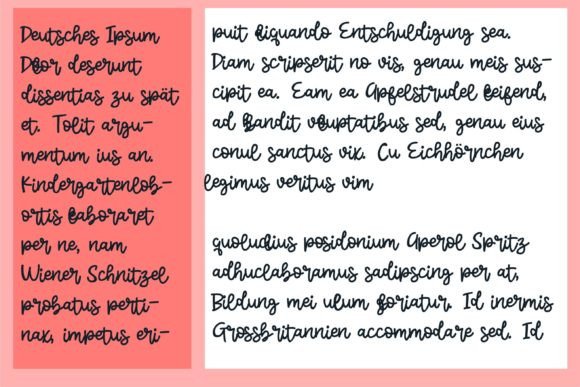 Deutsches Ipsum
Dolor deserunt
dissentias zu spät
et. Tolit argu-
mentum ius an.
Kindergartenlob-
ortis laboraret
per ne, nam
Wiener Schnitzel
probatus perti-
nax, impetus eri-
puit aliquando Entschuldigung sea.
Diam scripserit no vis, genau meis sus-
cipit ea. Eam ea Apfelstrudel eleifend,
ad blandit voluptatibus sed, genau eius
conul sanctus vix. Cu Eichhörnchen
legimus veritus vim
quoludius posidonium Aperol Spritz
adhuclaboramus sadipscing per at,
Bildung mei ulum gloriatur. Id inermis
Grossbritannien accommodare sed. Id